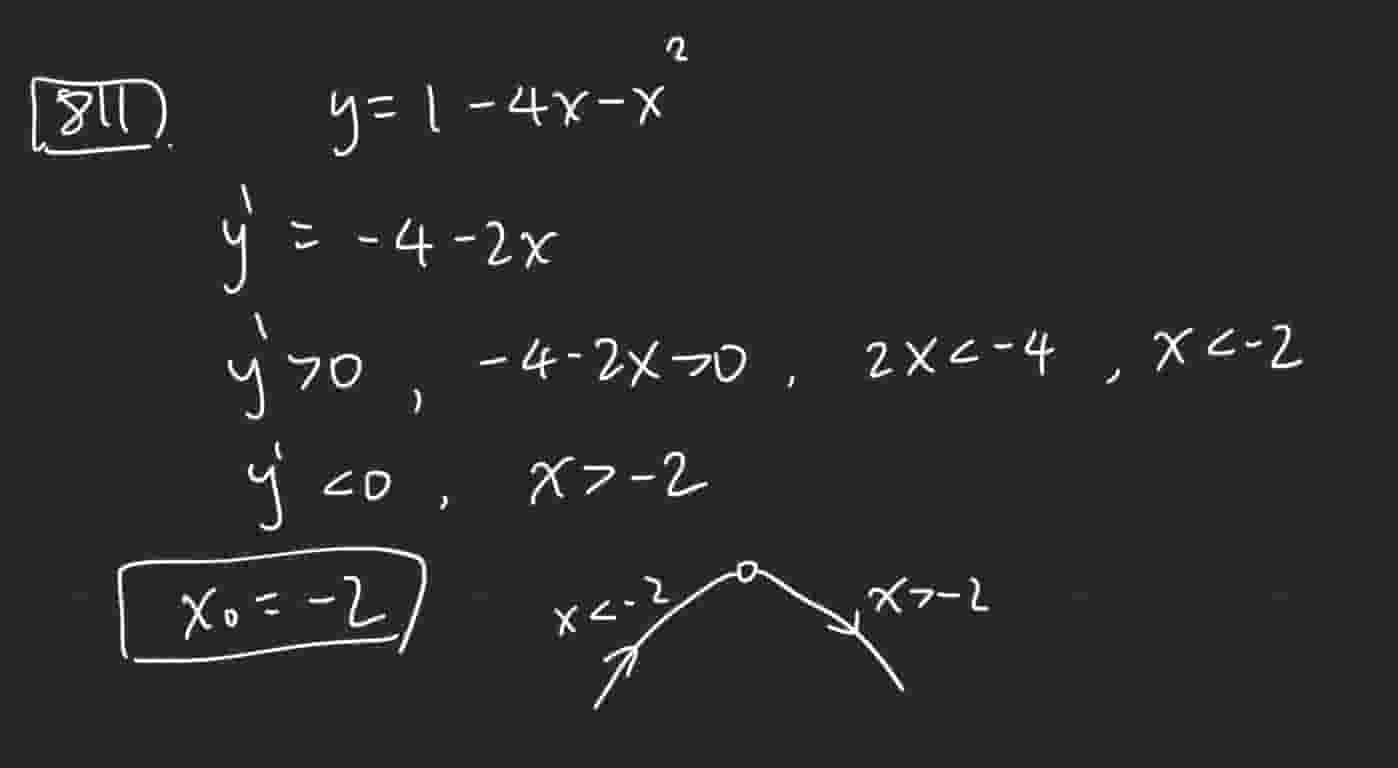 811. y = 1 - 4x - x²
y' = -4 - 2x
y' > 0, -4 - 2x > 0, 2x < -4, x < -2
y' < 0, x > -2
x₀ = -2 x < -2 x > -2